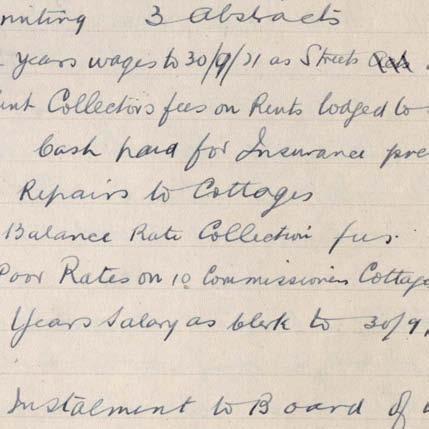 rinting 3 Abstracts
years wages to 30/9/21 as Streets
Collectors fees on Rents lodged to
Cash paid for Insurance pre
Repairs to Cottages
Balance Rate Collection fees.
Poor Rates on 10 Commissioners Cottage
Years Salary as Clerk to 30/9
Instalment to Board of